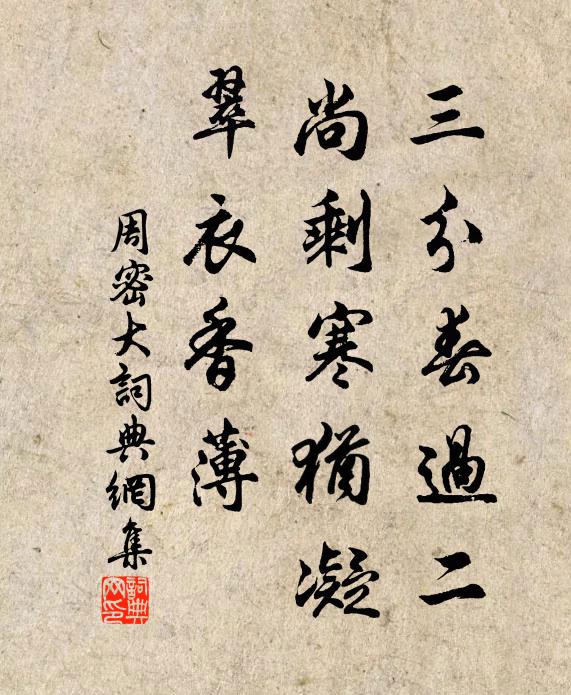 三分春過二
尚剩寒猶凝
翠衣香薄
周密大詞典網集
詞典网印